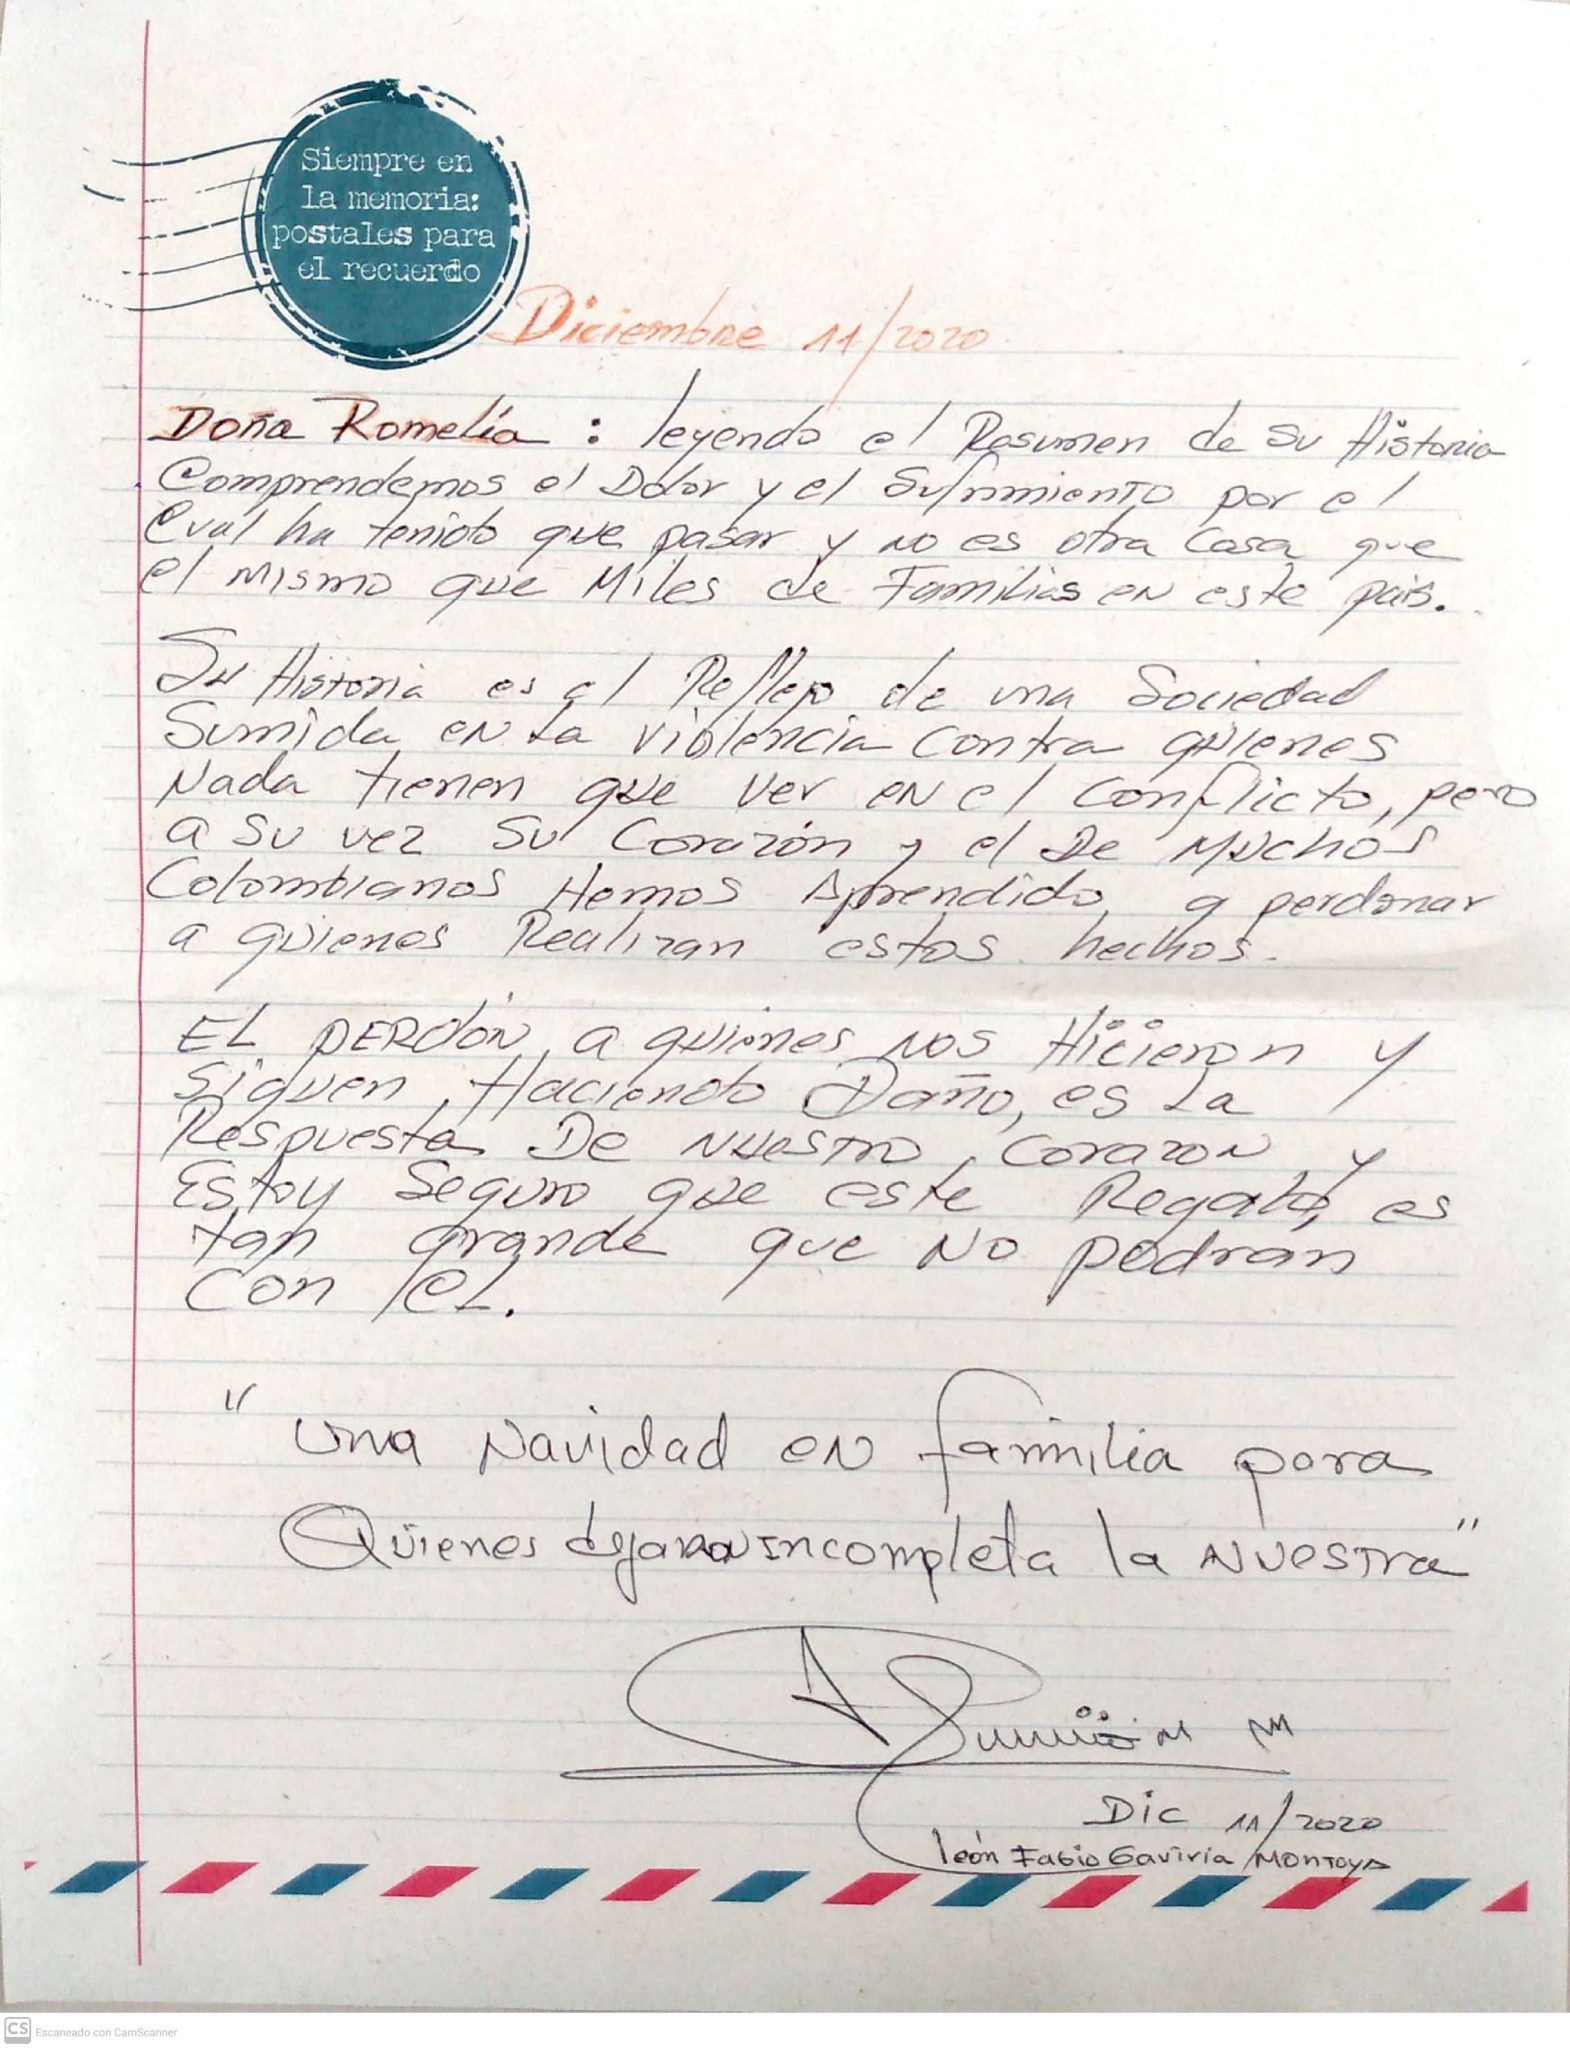 Siempre en
la memoria:
postales para
el recuerdo
Diciembre 11/2020
Doña Romelia : leyendo el Resumen de su Historia
Comprendemos el Dolor y el Sufrimiento por el
Cual ha tenido que pasar y no es otra Cosa que
el Mismo que Miles de Familias en este país.
Su Historia es el Reflejo de una Sociedad
Sumida en La violencia contra quienes
Nada tienen que ver en el conflicto, pero
a su vez su Corazón y el De Muchos
Colombianos Hemos Aprendido, a perdonar
a quienes Realizan estos hechos.
EL PERDÓN, a quienes nos Hicieron y
Siguen, Haciendo Daño, es La
Respuesta De nuestro, corazon, y
Estoy Seguro que este Regalo, es
tan grande que NO podran
Con eL.
" Una Navidad en familia para
Quienes dejaron incompleta la nuestra"
Dic 11/2020
león Fabio Gaviria Montoya
CS Escaneado con CamScanner